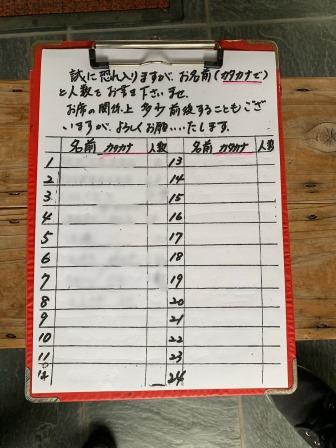 誠に恐れ入りますが、お名前(カタカナで)
と人数をお書き下さいませ。
お席の関係上 多少前後することもござ
いますが、よろしくお願いいたします。
名前 カタカナ 人数 名前 カタカナ 人数
1 13
2 14
3 15
4 16
5 17
6 18
7 19
8 20
9 21
10 22
11 23
12 24